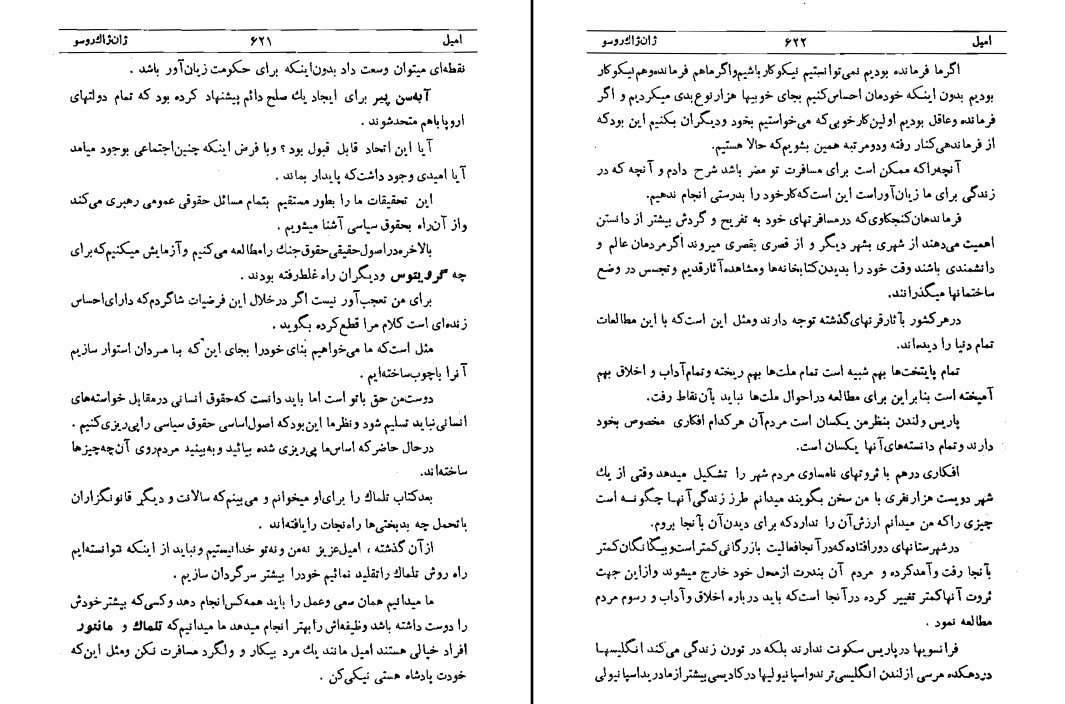 امیل ۶۲۱ ژان‌ژاك‌روسو
نقطه‌ای میتوان وسعت داد بدون‌اینکه برای حکومت زیان‌آور باشد .
آبه‌سن پیر برای ایجاد یك صلح دائم پیشنهاد کرده بود که تمام دولتهای
اروپا باهم متحدشوند .
آیا این اتحاد قابل قبول بود ؟ وبا فرض اینکه چنین‌اجتماعی بوجود میامد
آیا امیدی وجود داشت‌که پایدار بماند .
این تحقیقات ما را بطور مستقیم بتمام مسائل حقوقی عمومی رهبری می‌کند
واز آن‌راه بحقوق سیاسی آشنا میشویم .
بالاخره‌دراصول‌حقیقی‌حقوق‌جنك رامطالعه می‌کنیم وآزمایش میکنیم‌که‌برای
چه گروینوس ودیگران راه غلط‌رفته بودند .
برای من تعجب‌آور نیست اگر درخلال این فرضیات شاگردم‌که دارای‌احساس
زنده‌ای است کلام مرا قطع‌کرده بگوید .
مثل است‌که ما می‌خواهیم بنای خودرا بجای این که با مردان استوار سازیم
آنرا باچوب‌ساخته‌ایم .
دوست‌من حق باتو است اما باید دانست که‌حقوق انسانی درمقابل خواسته‌های
انسانی‌نباید تسلیم شود ونظرما این‌بودکه اصول‌اساسی حقوق سیاسی راپی‌ریزی‌کنیم .
درحال حاضرکه اساس‌ها پی‌ریزی شده بیائید وبه‌بینید مردم‌روی آن‌چه‌چیزها
ساخته‌اند.
بعدکتاب تلماك را برای‌او میخوانم و می‌بینم‌که سالانت و دیگر قانونگزاران
باتحمل چه بدبختی‌ها راه‌نجات رایافته‌اند .
ازآن گذشته ، امیل‌عزیز نه‌من ونه‌تو خدانیستیم ونباید از اینکه نتوانسته‌ایم
راه روش تلماك راتقلید نمائیم خودرا بیشتر سرگردان سازیم .
ما میدانیم همان سعی وعمل را باید همه‌کس‌انجام دهد وکسی‌که بیشترخودش
را دوست داشته باشد وظیفه‌اش رابهتر انجام میدهد ما میدانیم‌که تلماك و مانتور
افراد خیالی هستند امیل مانند یك مرد بیکار و ولگرد مسافرت نکن ومثل این‌که
خودت پادشاه هستی نیکی‌کن .
امیل ۶۲۲ ژان‌ژاك‌روسو
اگرما فرمانده بودیم نمی‌توانستیم نیکوکار باشیم‌واگرماهم فرمانده‌وهم‌نیکوکار
بودیم بدون اینکه خودمان احساس‌کنیم بجای خوبیها هزارنوع‌بدی میکردیم و اگر
فرمانده وعاقل بودیم اولین‌کارخوبی‌که می‌خواستیم بخود ودیگران بکنیم این بودکه
از فرماندهی‌کنار رفته ودومرتبه همین بشویم‌که حالا هستیم.
آنچه‌راکه ممکن است برای مسافرت تو مضر باشد شرح دادم و آنچه که در
زندگی برای ما زیان‌آوراست این است‌که‌کارخود را بدرستی انجام ندهیم.
فرماندهان‌کنجکاوی‌که درمسافرتهای خود به تفریح و گردش بیشتر از دانستن
اهمیت می‌دهند از شهری بشهر دیگر و از قصری بقصری میروند اگرمردمان عالم و
دانشمندی باشند وقت خود را بدیدن‌کتابخانه‌ها ومشاهده‌آثارقدیم وتجسس در وضع
ساختمانها میگذرانند.
درهرکشور بآثارقرنهای‌گذشته توجه دارند ومثل این است‌که با این مطالعات
تمام دنیا را دیده‌اند.
تمام پایتخت‌ها بهم شبیه است تمام ملت‌ها بهم ریخته وتمام‌آداب و اخلاق بهم
آمیخته است بنابراین برای مطالعه دراحوال ملت‌ها نباید بآن‌نقاط رفت.
پاریس ولندن بنظرمن یکسان است مردم‌آن هرکدام افکاری مخصوص بخود
دارند وتمام دانسته‌های‌آنها یکسان است.
افکاری درهم با ثروتهای نامساوی مردم شهر را تشکیل میدهد وقتی از یك
شهر دویست هزارنفری با من سخن بگویند میدانم طرز زندگی‌آنها چگونه است
چیزی راکه من میدانم ارزش‌آن را نداردکه برای دیدن‌آن بآنجا بروم.
درشهرستانهای دورافتاده‌که‌درآنجافعالیت بازرگانی‌کمتراست‌وبیگانگان‌کمتر
بآنجا رفت وآمدکرده و مردم آن بندرت ازمحل خود خارج میشوند وازاین جهت
ثروت آنهاکمتر تغییر کرده درآنجا است‌که باید درباره اخلاق‌وآداب و رسوم مردم
مطالعه نمود .
فرانسویها درپاریس سکونت ندارند بلکه در تورن زندگی می‌کند انگلیسها
دردهکده مرسی ازلندن انگلیسی‌ترندواسپانیولیها درکادیسی‌بیشترازمادریداسپانیولی